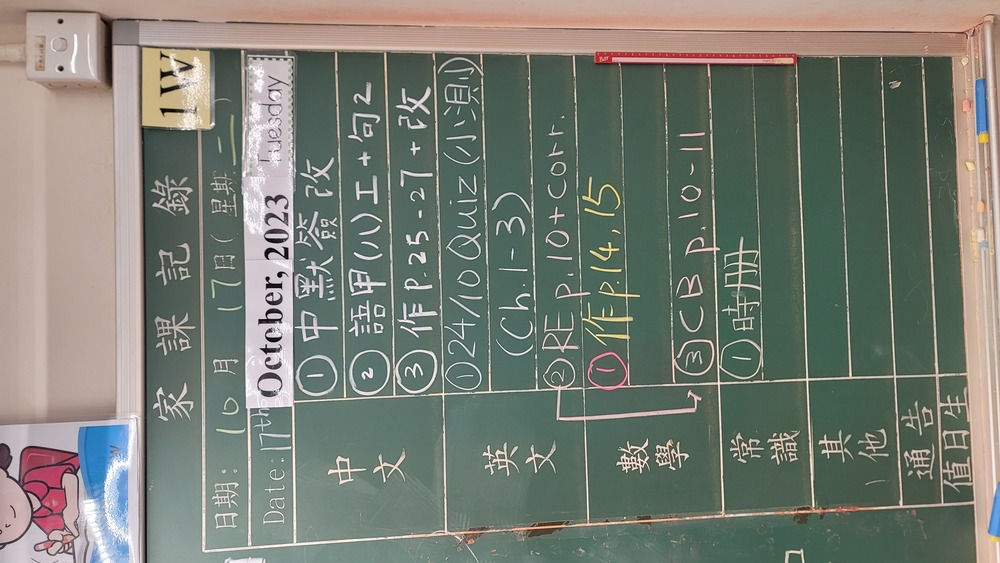 1W
家課記錄
日期: 10月17日(星期二)
Date: 17th October, 2023 Tuesday
中文
①中默簽改
②語甲(八)工+句2
③作P.25-27+改
英文
①24/10 Quiz (小測)
(Ch.1-3)
②RE p.10+corr.
數學
①作p.14,15
③CB p.10-11
常識
①時冊
其他
通告
值日生